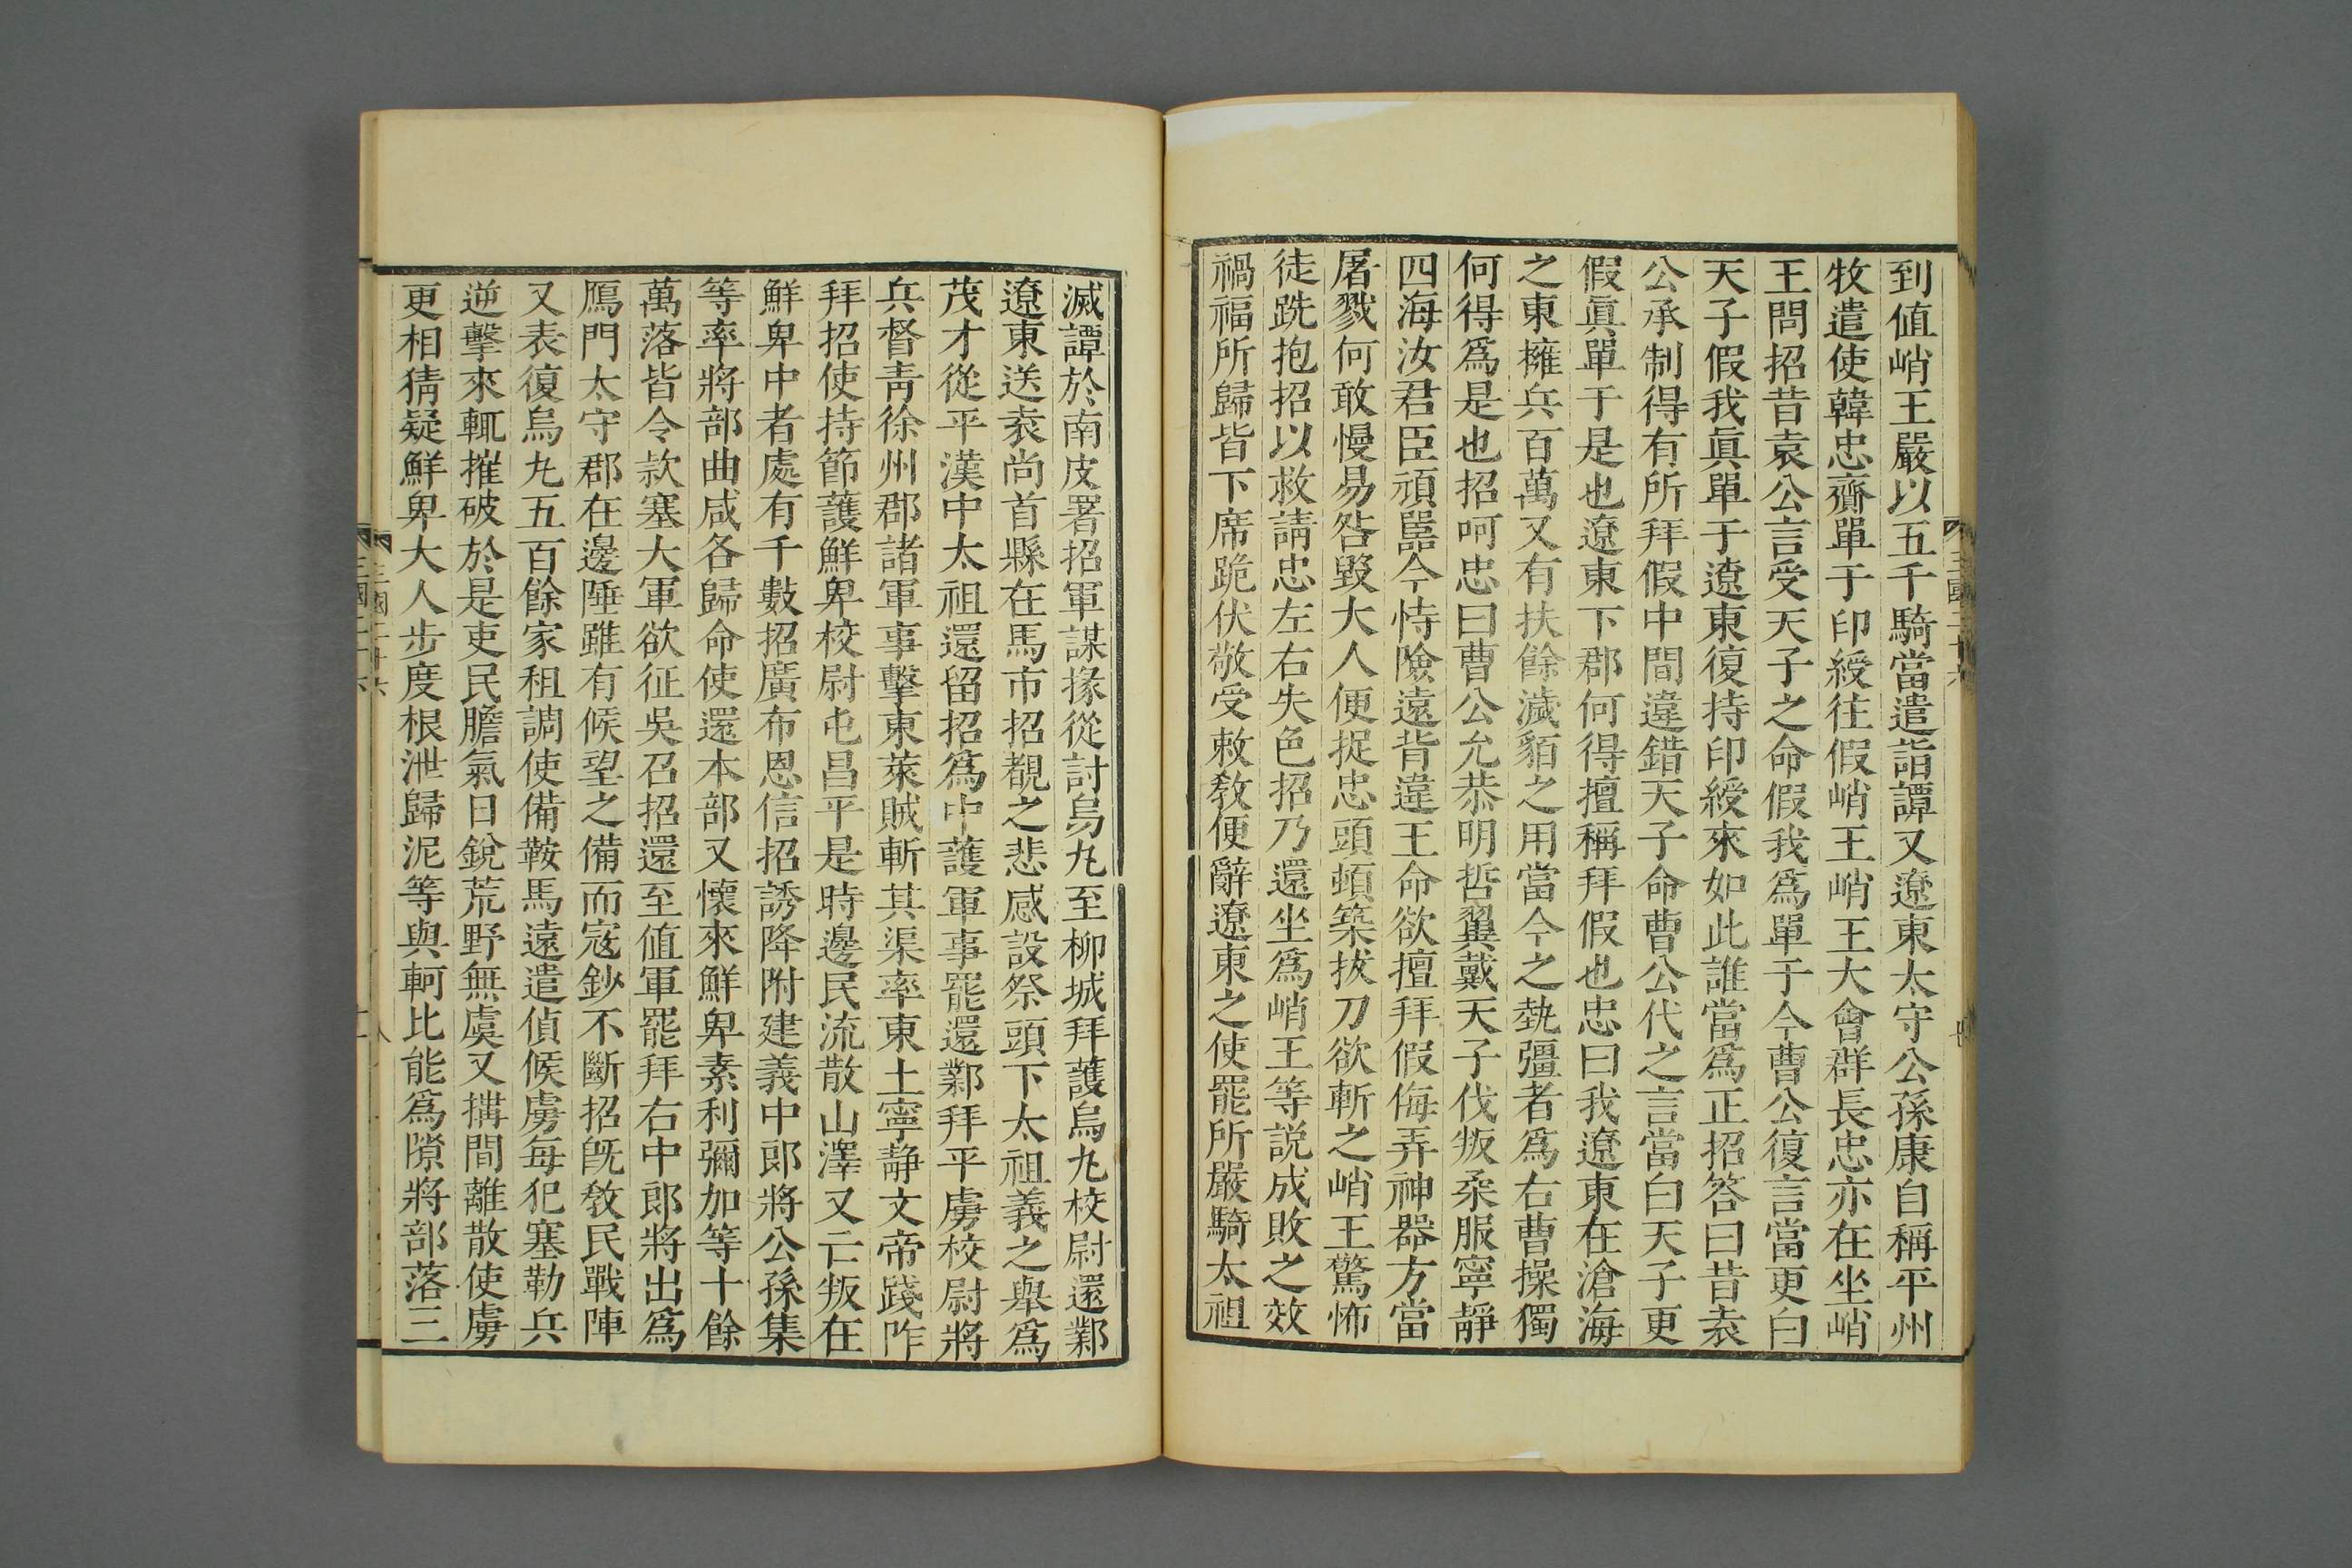 到値峭王嚴以五千騎當遣詣譚又遼東太守公孫康自稱平州
牧遣使韓忠齎單于印綬往假峭王峭王大會群長忠亦在坐峭
王問招昔袁公言受天子之命假我爲單于今曹公復言當更白
天子假我眞單于遼東復持印綬來如此誰當爲正招答曰昔袁
公承制得有所拜假中間違錯天子命曹公代之言當白天子更
假眞單于是也遼東下郡何得擅稱拜假也忠曰我遼東在滄海
之東擁兵百萬又有扶餘濊貊之用當今之埶彊者爲右曹操獨
何得爲是也招呵忠曰曹公允恭明哲翼戴天子伐叛柔服寧靜
四海汝君臣頑嚚今恃險遠背違王命欲擅拜假侮弄神器方當
屠戮何敢慢易咎毀大人便捉忠頭頓築拔刀欲斬之峭王驚怖
徒跣抱招以救請忠左右失色招乃還坐爲峭王等説成敗之效
禍福所歸皆下席跪伏敬受敕敎便辭遼東之使罷所嚴騎太祖
滅譚於南皮署招軍謀掾從討烏丸至柳城拜護烏丸校尉還鄴
遼東送袁尚首縣在馬市招覩之悲感設祭頭下太祖義之舉爲
茂才從平漢中太祖還留招爲中護軍事罷還鄴拜平虜校尉將
兵督青徐州郡諸軍事擊東萊賊斬其渠率東土寧静文帝踐阼
拜招使持節護鮮卑校尉屯昌平是時邊民流散山澤又亡叛在
鮮卑中者處有千數招廣布恩信招誘降附建義中郎將公孫集
等率將部曲咸各歸命使還本部又懷來鮮卑素利彌加等十餘
萬落皆令款塞大軍欲征吳召招還至値軍罷拜右中郎將出爲
鴈門太守郡在邊陲雖有候望之備而寇鈔不斷招旣敎民戰陣
又表復烏丸五百餘家租調使備鞍馬遠遣偵候虜每犯塞勒兵
逆擊來輒摧破於是吏民膽氣日銳荒野無虞又搆間離散使虜
更相猜疑鮮卑大人步度根泄歸泥等與軻比能爲隙將部落三
三國二十六